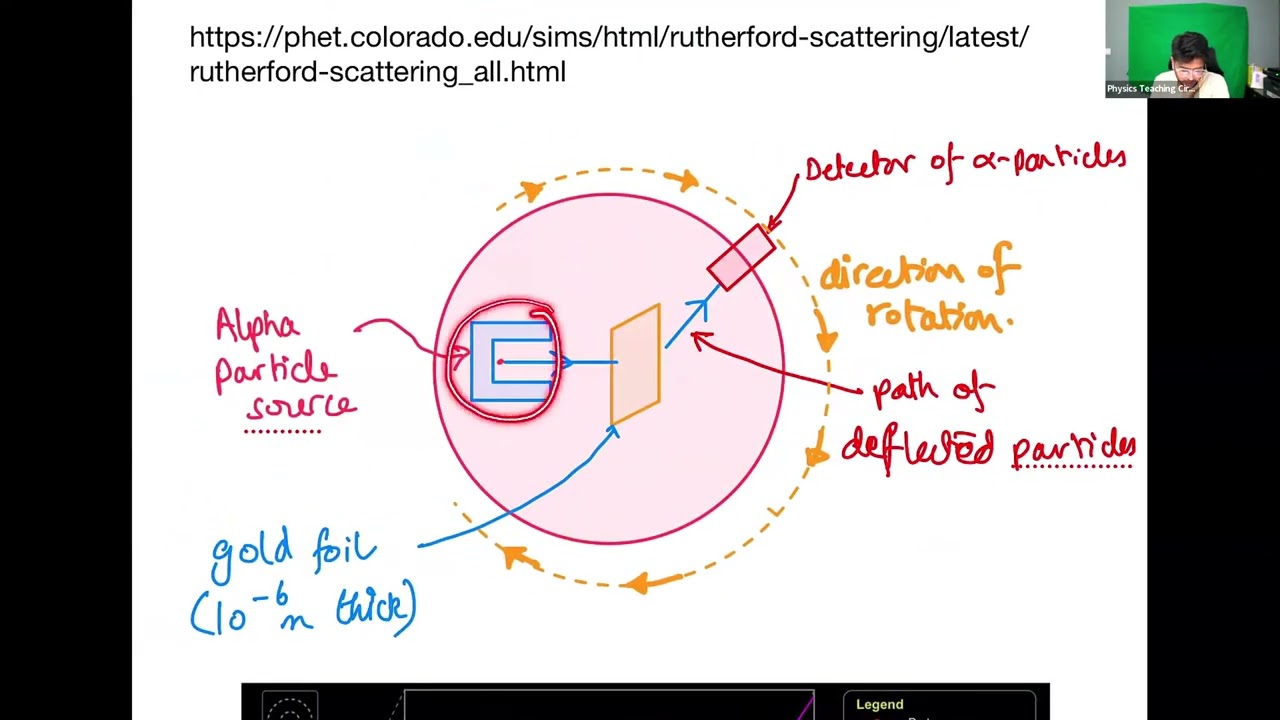 https://phet.colorado.edu/sims/html/rutherford-scattering/latest/
rutherford-scattering_all.html
Physics Teaching Cir...
Detector of α-particles
direction of
rotation.
Alpha
particle
source
path of
deflected particles
gold foil
(10⁻⁶ m thick)
Legend